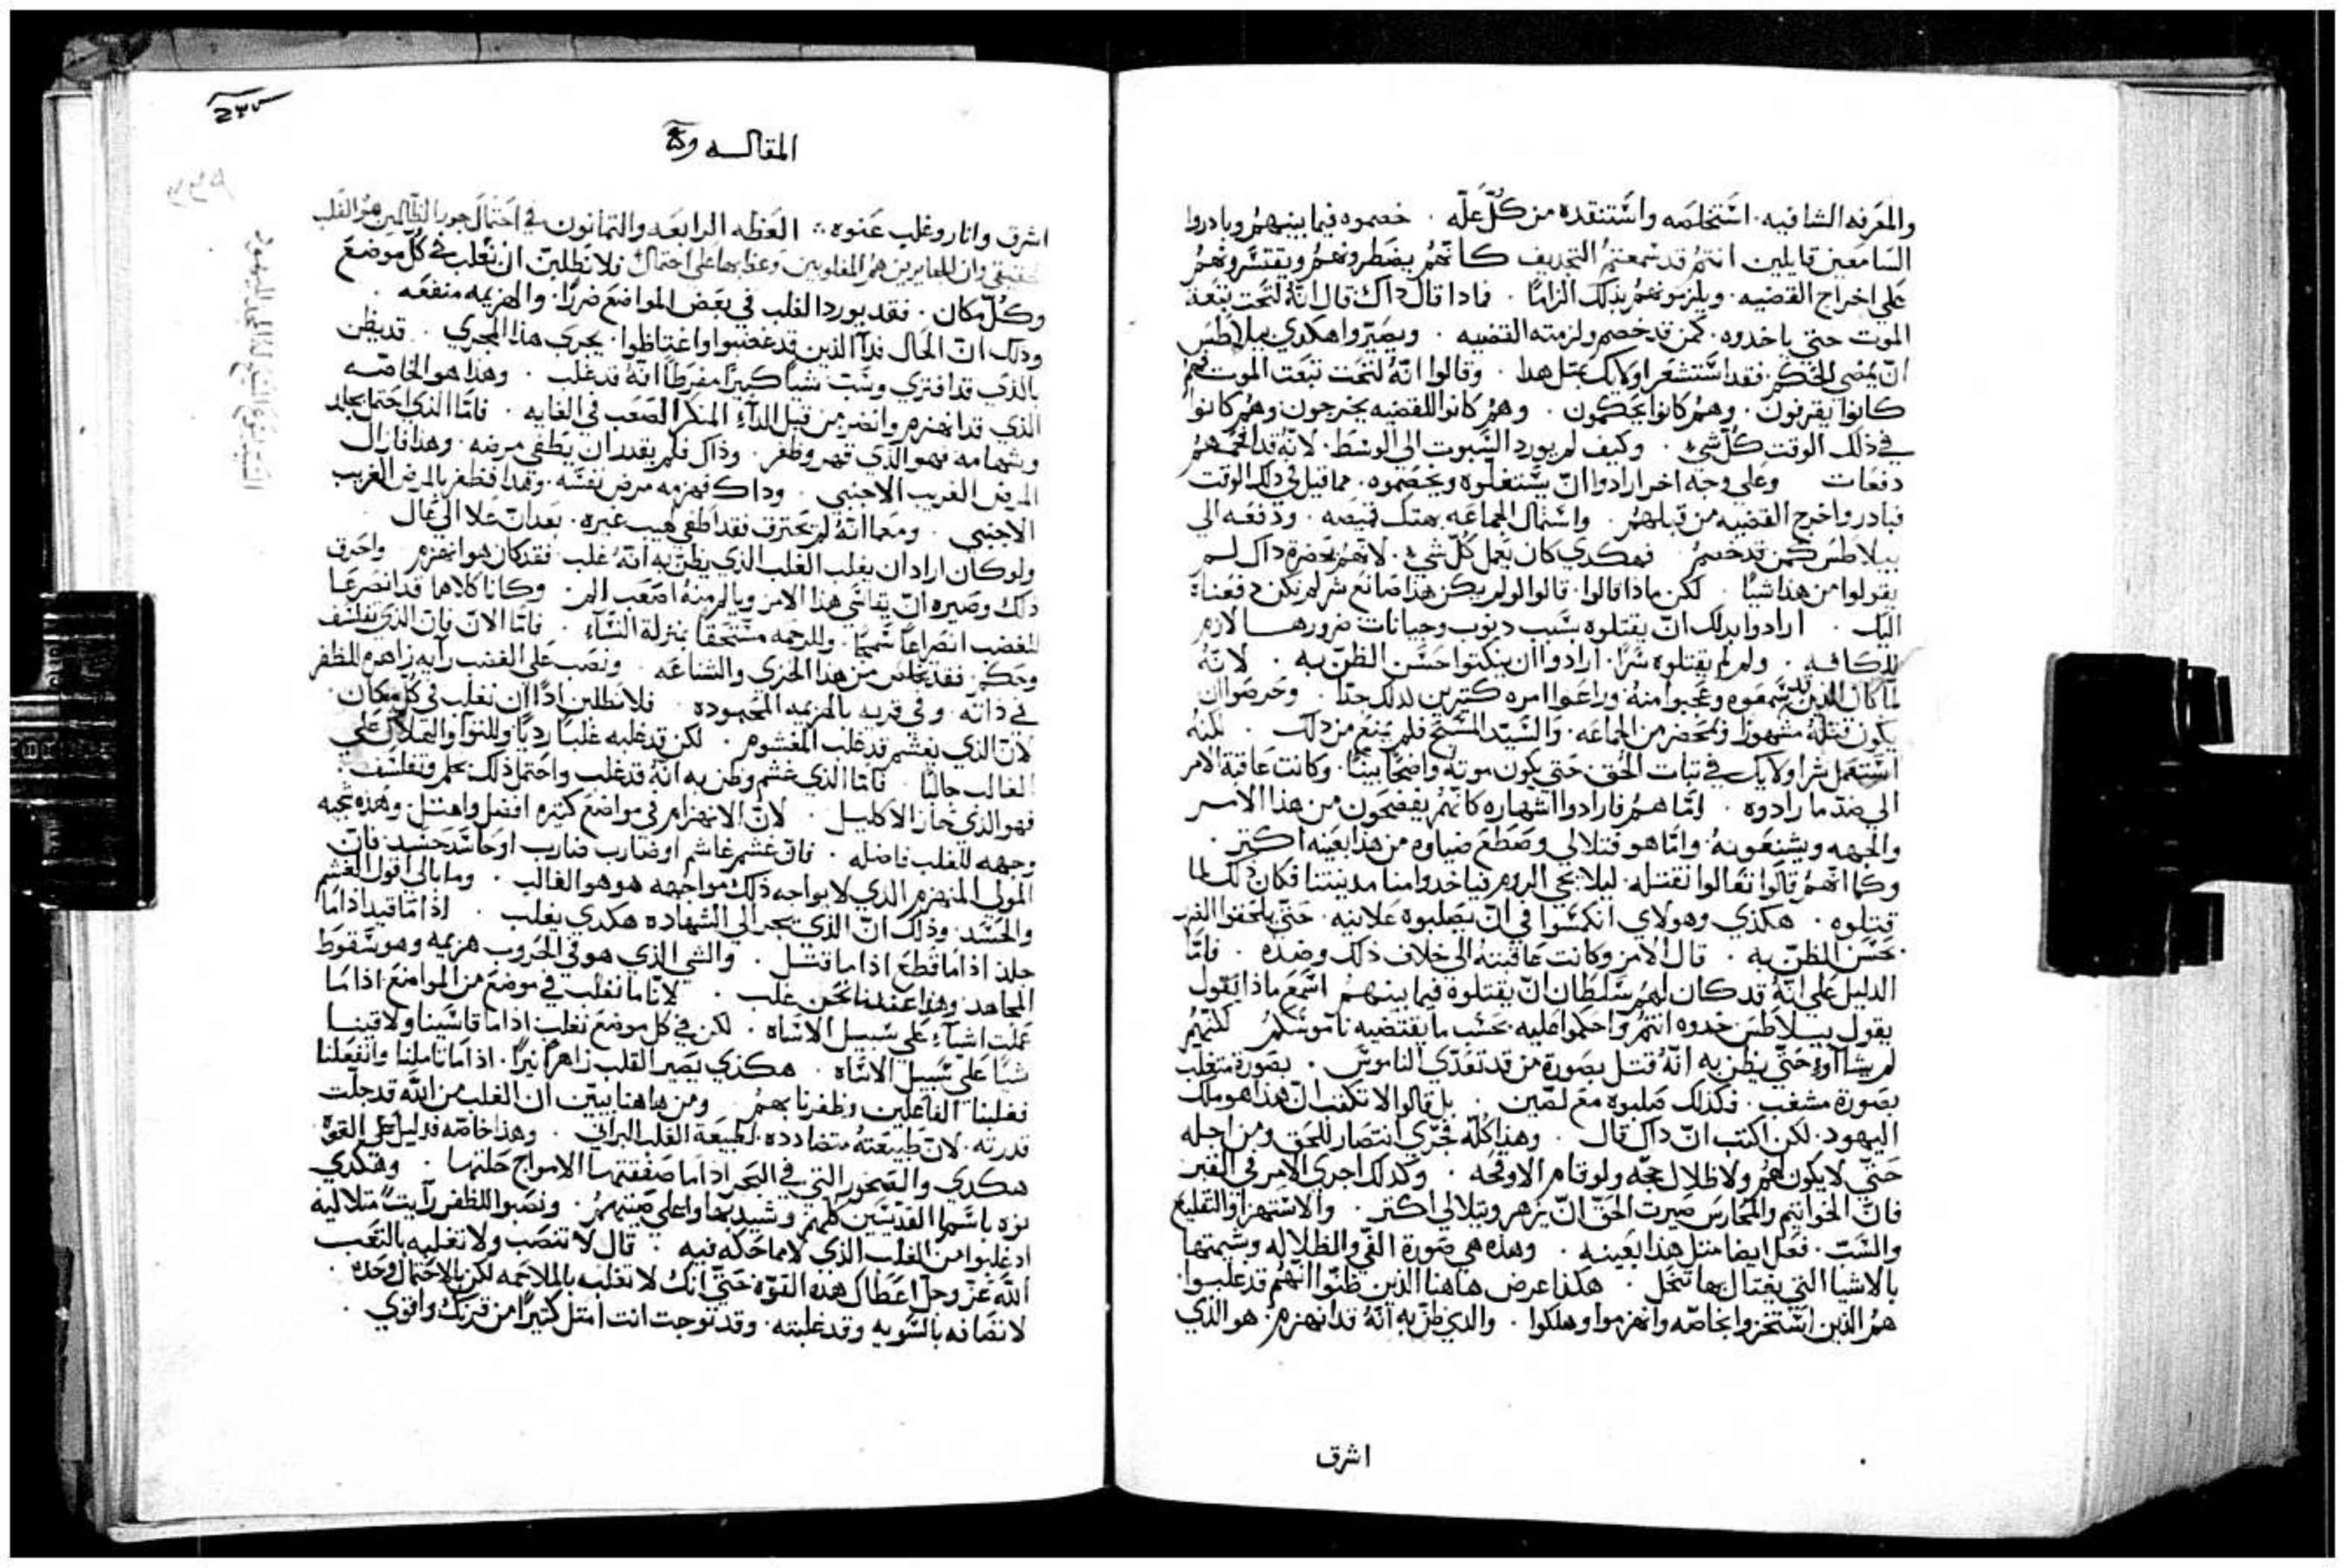 والمعرفه الشافيه. استخلصه واستنقده من كلّ علّه . خصموه فيما بينهم وبادروا
السامعين قايلين انتم قد سمعتم التجديف كانهم يضطرونهم ويقتسرونهم
على اخراج القضيه. ويلزمونهم بذلك الزامًا . فاذا قال داك قال انّه لتحت تبعة
الموت حتي ياخدوه. كمن قد خصم ولزمته القضيه . ويصيروا هكدي ببيلاطس
انّ يمضي الحكم. فقد استشعر اولايك بمثل هدا . وقالوا انّه لتحت تبعت الموت فهم
كانوا يقرفون. وهم كانوا يحكمون . وهم كانوا للقضيه يخرجون. وهم كانوا
في ذلك الوقت كلّ شيء . وكيف لم يورد السبوت الي الوسط. لانّه قد افحمهم
دفعات وعلي وجه اخر ارادوا انّ يستغلّوه ويخصموه. مما قيل في ذلك الوقت
فبادر واخرج القضيه من قبلهم. واستمال الجماعه بهتك قميصه . ودفعه الي
بيلاطس كمن قد خصم فهكدي كان يعمل كلّ شيء. لانهم بحضرة داك لم
يقولوا من هذا شيًا . لكن ماذا قالوا. قالوا لو لم يكن هذا صانع شر لم نكن دفعناه
اليك . ارادوا بدلك انّ يقتلوه بسبب دنوب وجنايات ضرورها لازم
للكافه . ولم لم يقتلوه سرًا. ارادوا ان ينكتوا حسن الظنّ به . لانّهُ
لما كان الدين قد سمعوه وعجبوا منه وراعوا امره كتيرين لدلك جدًا . وحرصوا ان
يكون قتله مشهورًا وبمحضر من الجماعه. والسيّد المسيح فلم يمنع من دلك . لكنه
استعمل شر اولايك في تبات الحق. حتي يكون موته واضحًا بينًا. وكانت عاقبة الامر
الي ضد ما ارادوه . امّا هم فارادوا اشهاره كانهم يفضحون من هذا الامر
والجهه ويشنعون به. وامّا هو فتلالي وصطع ضياوه من هذا بعينه اكتر .
وكما انهم قالوا تعالوا نقتله. ليلا يجي الروم فياخدوا منا مدينتنا فكان ذلك لما
قتلوه . هكذي وهولاي انكمشوا في انّ يصلبوه علانيه. حتّي يلحقوا الضرر
بحسن الظنّ به . قال الامر وكانت عاقبته الي خلاف ذلك وضده . فامّا
الدليل علي انّه قد كان لهم سلطان انّ يقتلوه فيما بينهم اسمع ماذا يقول
يقول بيلاطس خدوه انتم واحكموا عليه. بحسب ما يقتضيه ناموسكم لكنهم
لم يشاأوا حتّي يظن به انّه قتل بصورة من قد تعدّي الناموس . بصورة متغلب
بصورة مشغب. فكذلك صلبوه مع لصّين . بل قالوا لا تكتب انّ هذا هو ملك
اليهود. لكن اكتب انّ داك قال . وهذا كلّه فجري انتصار للحق ومن اجله
حتّي لا يكون لهم ولا ظلال حجّه ولو قام الاوقحه . وكدلك اجري الامر في القبر
فانّ الخواتيم والمحارس صيرت الحقّ انّ يزهر ويتلالي اكتر . والاستهزا والتقليع
والسّبّ. فعل ايضا متل هذا بعينه . وهذه هي صورة الغي والظلاله وشيمتها
بالاشيا التي يغتال بها تنحل . هكذا عرض هاهنا الذين ظنوا انهم قد غلبوا.
هم الذين استخزوا بخاصّه وانهزموا وهلكوا . والدي ظنّ به انّهُ قد انهزم. هو الذي
اشرق
المقاله
اشرق وانار وغلب عنوه. العظه الرابعه والتمانون في احتمال جور الظالمين هو الغلب
الحقيقي وان الجايرين هم المغلوبين فلا تطلبنّ ان تغلب في كلّ موضع
وكلّ مكان . فقد يورد الغلب في بعض المواضع ضررًا. والهزيمه منفعه .
وذلك انّ الحال فدآ الذين قد غضبوا واغتاظوا. يجري هذا المجري . قد يظن
بالذي قد افتري وسبّ شيًا كبيرًا مفرطًا انّهُ قد غلب . وهذا هو الخاصّه
الذي قد انهزم وانضر من قبل الدآء المنكر الصعب في الغايه . فامّا الذي احتمل بجلد
وشهامه فهو الذي قهر وظفر. وذاك فلم يقدر ان يطفي مرضه. وهذا فازال
المرض الغريب الاجنبي . وداك فهزمه مرض نفسه. وهذا فظفر بالمرض الغريب
الاجنبي . ومع ما انّهُ لم يحترق فقد اطفي لهيب غيره. بعد ان علا الي تمال
ولو كان اراد ان يغلب الغلب الذي يظن به انّهُ غلب فقد كان هو انهزم واحرق
ذلك وصيره انّ يقاسي هذا الامر ويالم منهُ اصعب الم. وكانا كلاهما قد انصرعا
للغضب انصراعًا سمجًا. وللرحمه مستحقًا بمنزلة النسآء . فامّا الان فانّ الذي تفلسف
وحكم. فقد تخلّص من هذا الخزي والشناعه . ونصب علي الغضب رآيه زاهره للظفر
في ذاته. وفي قريبه بالهزيمه المحموده . فلا تطلبن اذًا ان تغلب في كل مكان.
لانّ الذي يغشم قد غلب المغشوم. لكن قد غلبه غلبًا رديًا
الغالب جالبًا . فامّا الذي غشم وظن به انّهُ قد غلب واحتمل ذلك بحلم وتفلسف.
فهو الذي حاز الاكليل . لانّ الانهزام في مواضع كتيره افضل وامتل. وهذه تجيه
وجهه للغلب فاضله . فان غشم غاشم او ضارب ضارب او حاسد حسد. فان
المولي المنهزم الذي لا يواجه ذلك مواجهه هو هو الغالب . وما بالي اقول الغشم
والحسد. وذلك انّ الذي يجر الي الشهاده هكدي يغلب . اذا ما قيد اذا ما
جلد اذا ما قطع اذا ما قتل . والشي الذي هو في الحروب هزيمه وهو سقوط
المجاهد. وهذا عندنا نحن غلب . لانّا ما نغلب في موضع من المواضع اذا ما
عملت اشيآء علي سبيل الاساه . لكن في كل موضع نغلب اذا ما قاسينا ولاقينا
شيًا علي سبيل الاسّاه . هكذي يصير الغلب زاهرًا نيرًا. اذا ما نالنا وانفعلنا
فغلبنا الفاعلين وظفرنا بهم . ومن هاهنا يبيّن ان الغلب من اللّه قد جلّت
قدرته. لانّ طبيعته متضادده لطبيعة الغلب البرآني . وهذا خاصّه فدليل علي القوه.
هكدي والصخور التي في البحر اذا ما صفقتها الامواج حلتها . وهكدي
نزه باسما القديسين كلهم ونصبوا للظفر رآيتً متلاليه
اد غلبوا من الغلب الذي لا مماحكه فيه . قال لا تنصب ولا تغلبه بالتعب
اللّه عزّ وجل اعطاك هده القوّه حتّي انك لا تغلبه بالملاحمه لكن بالاحتمال وحده .
لا تصافه بالسويه وقد غلبته. وقد توجت انت امتل كتيرًا من قرنك واقوي .